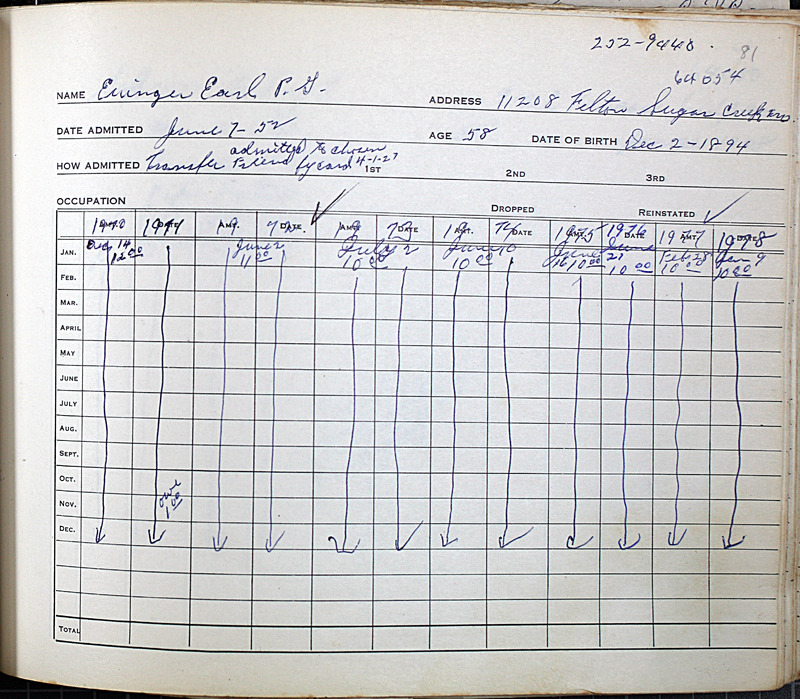 252-9440.
81
64054
NAME Euinger Earl P. G. ADDRESS 11208 Felton Sugar Creek Mo.
DATE ADMITTED June 7-52 AGE 58 DATE OF BIRTH Dec 2-1894
admitted to
HOW ADMITTED Transfer Friend by card 4-1-27 1ST 2ND 3RD
OCCUPATION DROPPED REINSTATED
AMT. DATE AMT. DATE AMT. DATE AMT. DATE AMT. DATE AMT. DATE
1970 1971 72 73 74 1975 1976 1977 1978
JAN. Dec 14 June 2 July 2 June 10 June June Feb 28 Jan 9
12 00 11 00 10 00 10 00 16 10 00 21 10 00 10 00 10 00
FEB.
MAR.
APRIL
MAY
JUNE
JULY
AUG.
SEPT.
OCT.
owe
NOV. 1 00
DEC.
TOTAL